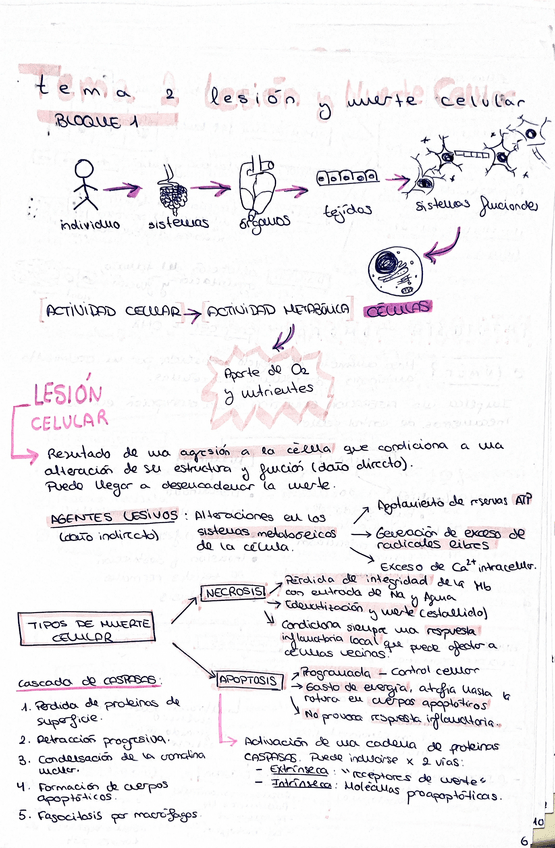 tema 2 lesión y muerte celular
BLOQUE 1
individuo
sistemas
órganos
tejidos
sistemas funcionales
[ACTIVIDAD CELULAR → ACTIVIDAD METABÓLICA]
CÉLULAS
Aporte de O2
y nutrientes
LESIÓN
CELULAR
Resultado de una agresión a la célula que condiciona a una
alteración de su estructura y función (daño directo).
Puede llegar a desencadenar la muerte.
AGENTES LESIVOS: Alteraciones en los
(daño indirecto)
sistemas metaboreicos
de la célula.
Agotamiento de rservas ATP
Generación de exceso de
radicales libres
Exceso de Ca2+ intracelular.
TIPOS DE MUERTE
CELULAR
NECROSIS
Pérdida de integridad de la Mb
con entrada de Na y Agua
y muerte (estallido)
Condiciona siempre una respuesta
inflamatoria local que puede afectar a
células vecinas.
APOPTOSIS
Programada - Control celular
Gasto de energía, atrofia hasta la
rotura en cuerpos apoptóticos
No provoca respuesta inflamatoria.
Activación de una cadena de proteínas
CASPASAS. Puede inducirse x 2 vías:
- Extrínseca: "receptores de muerte"
- Intrínseca: Moléculas proapoptóticas.
cascada de CASPASAS:
1. Pérdida de proteínas de
superficie.
2. Retracción progresiva.
3. Condensación de la cromatina
nuclear.
4. Formación de cuerpos
apoptóticos.
5. Fagocitosis por macrófagos.
10
6